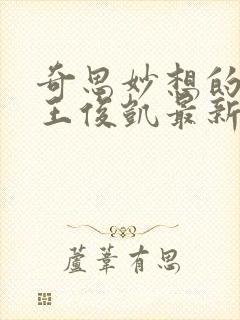 奇思妙想的
王俊凯最新
芦苇有思